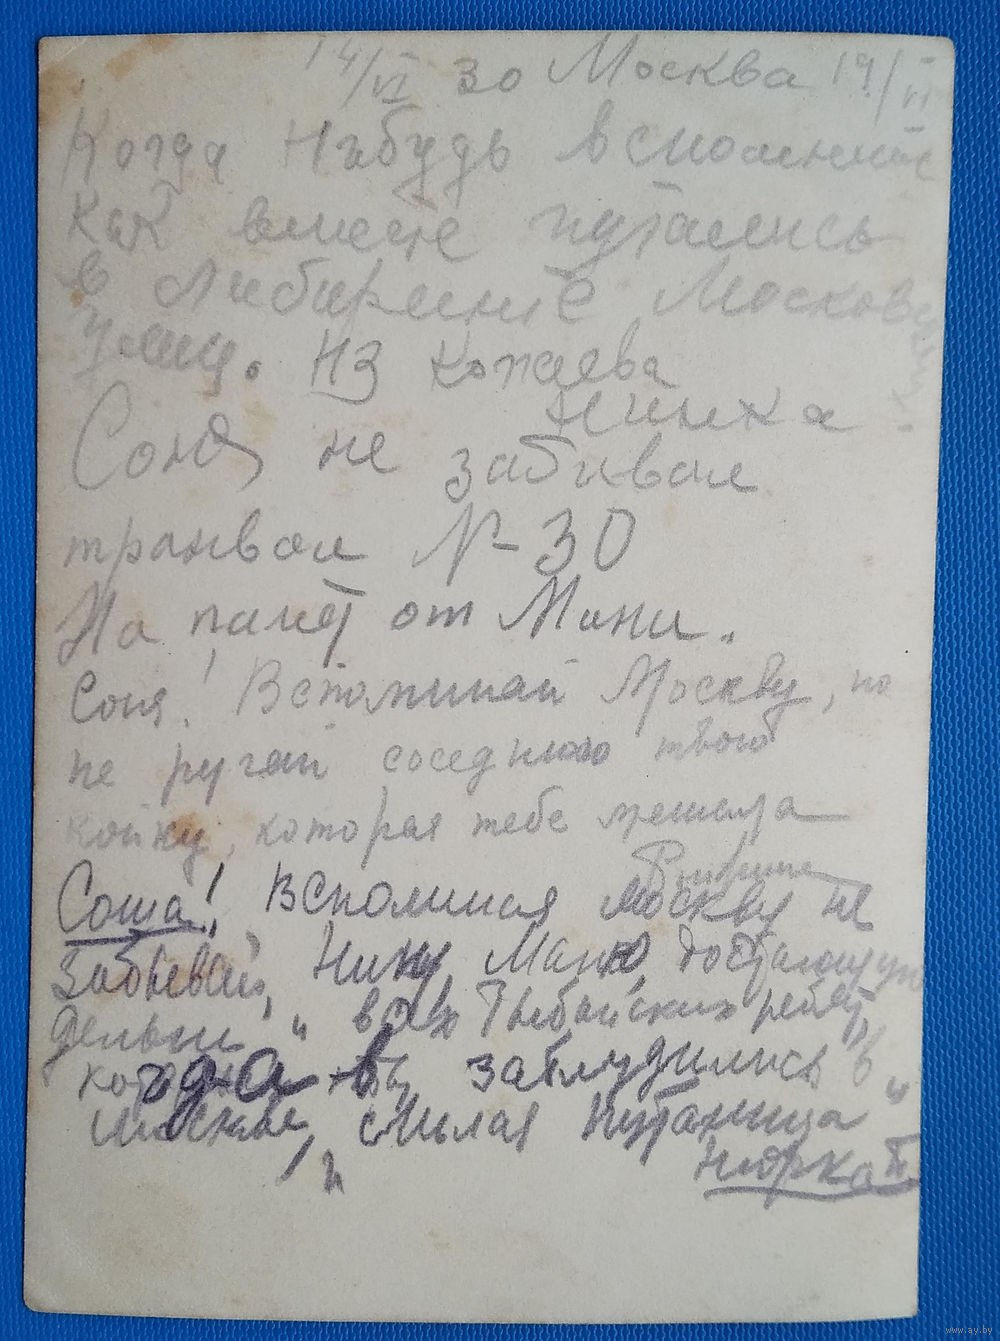 14/VI 30 Москва 19/VI
Когда нибудь вспомните
как вместе путались
в либиринте Московск
улиц. НЗ Кожаева
Нинка
Соня не забивай
транвай № 30
На память от Мани.
Соня! Вспоминай Москву, но
не ругай соседнюю твою
койку, которая тебе мешала
Соша! Вспоминая москву не
забывай, Нину, Маню,
деньги" и всех ребят
когда вы заблудились "в
москве, Милая Путаница"
Нюрка П
www.ay.by